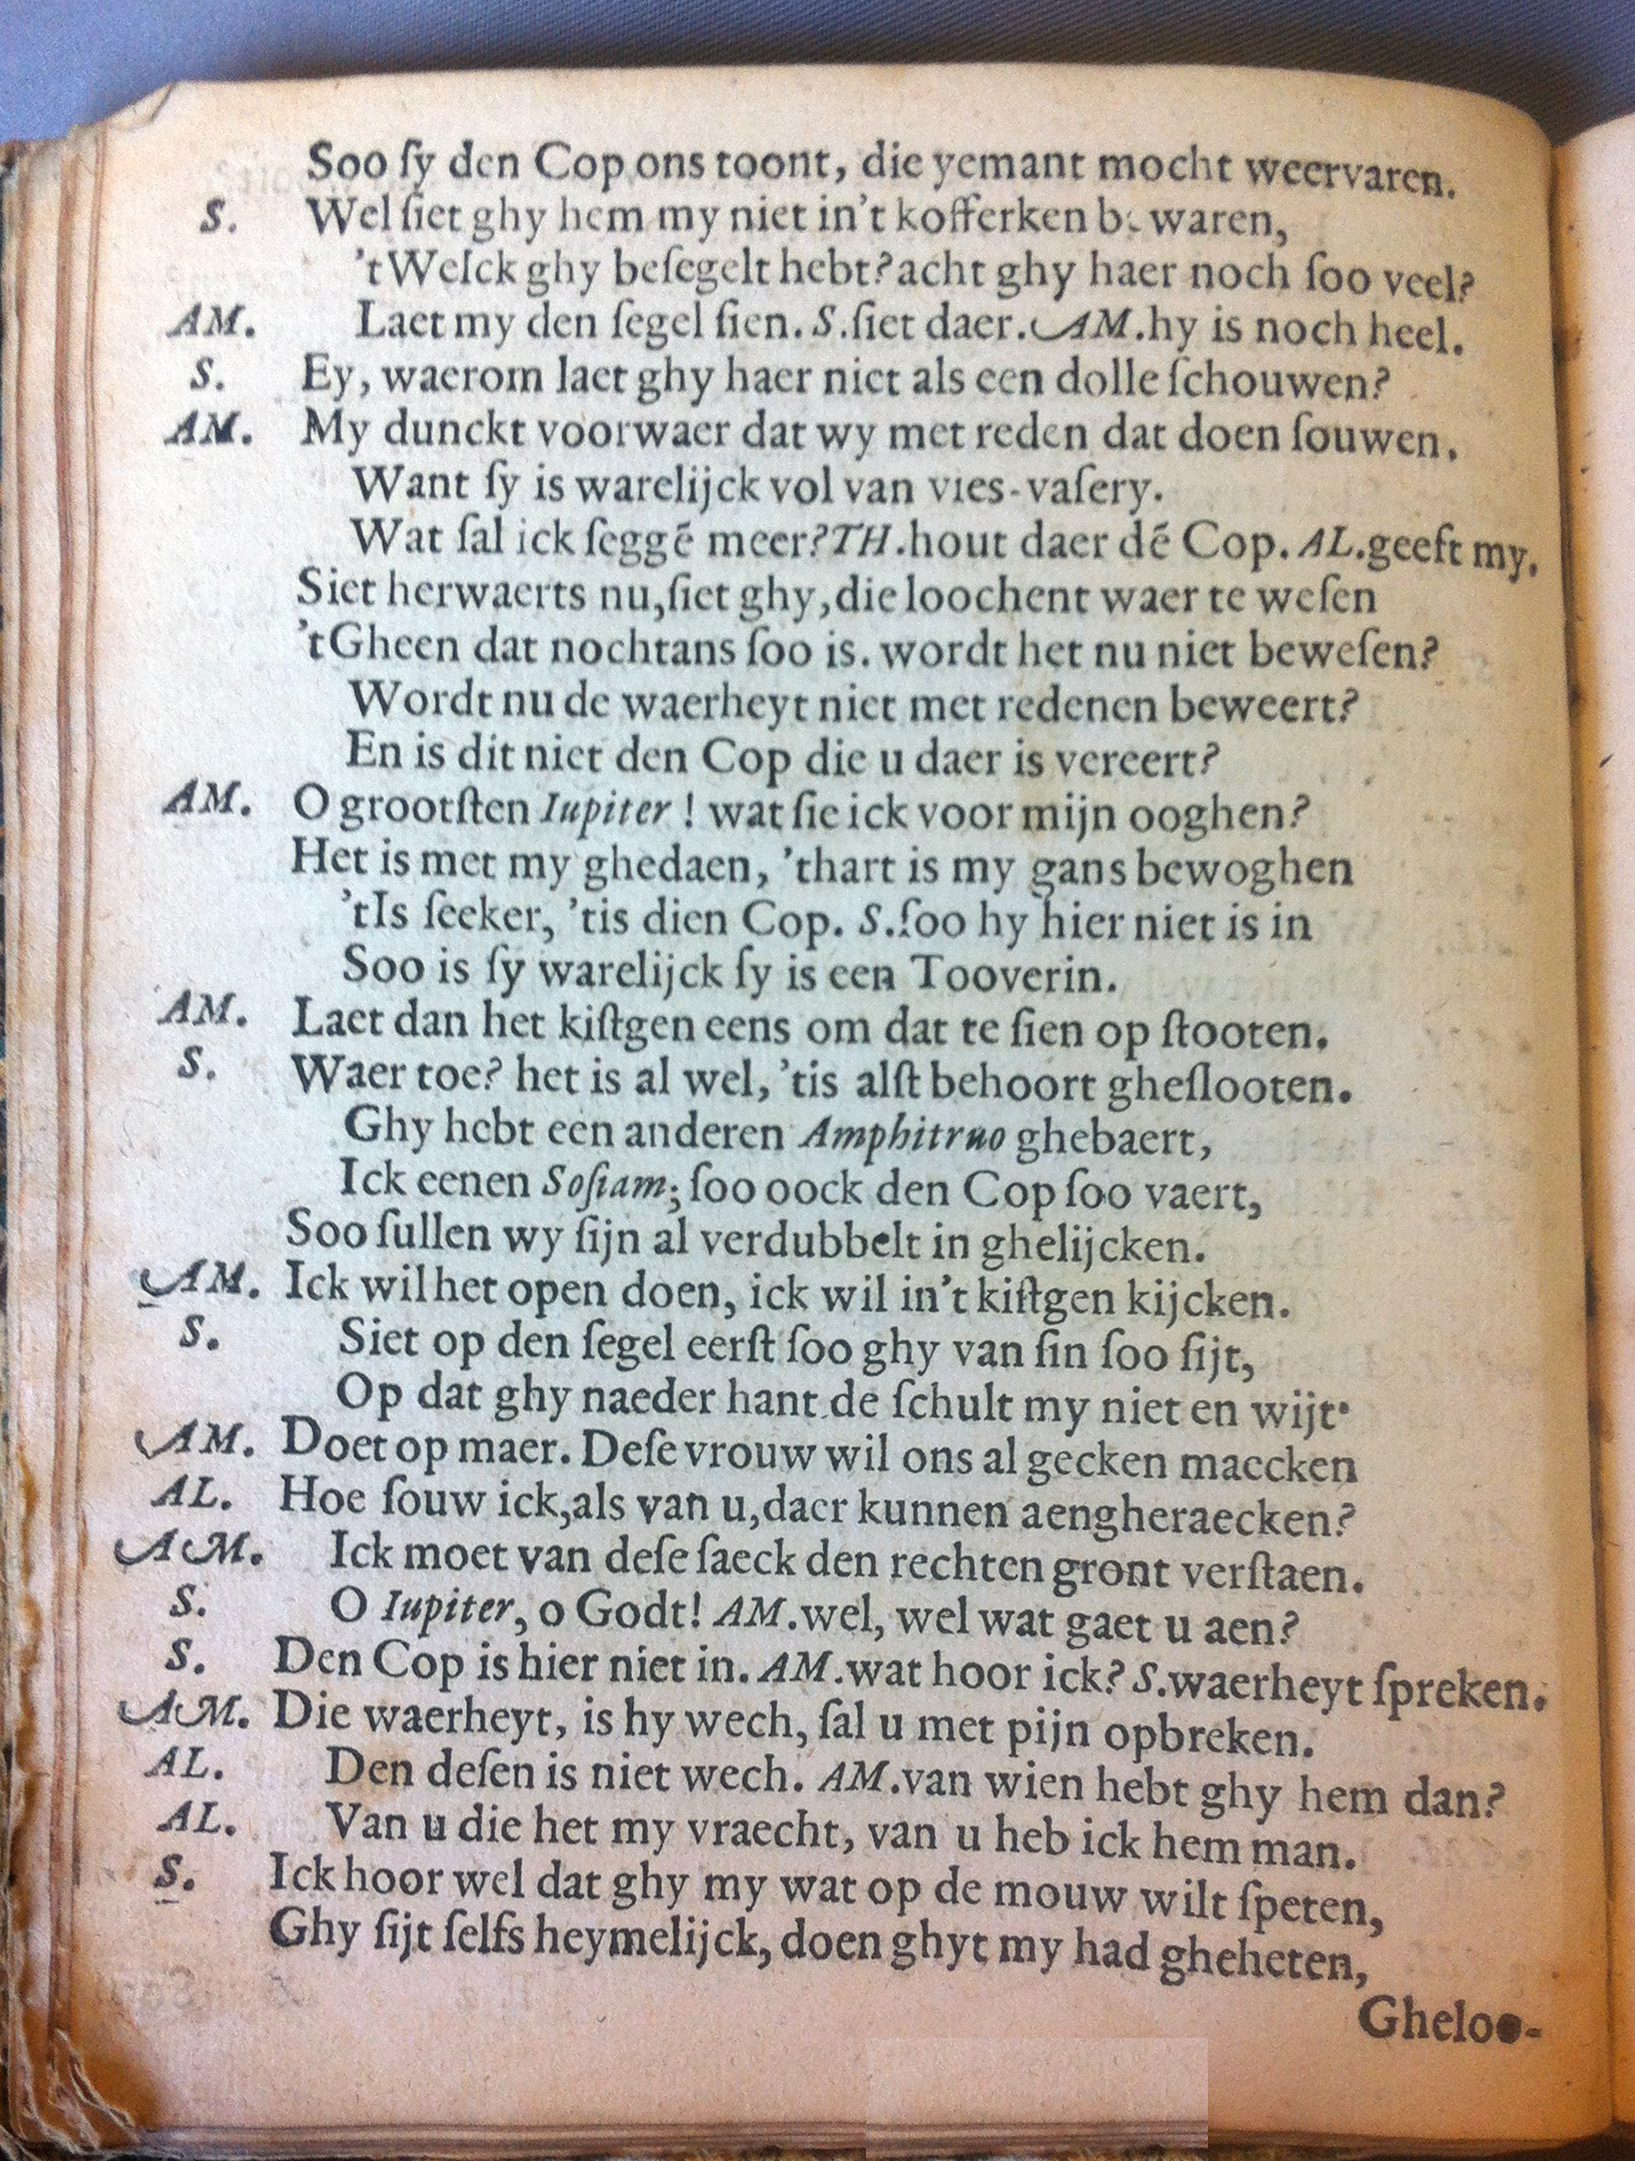 Soo ſy den Cop ons toont, die yemant mocht weervaren.
S. Wel ſiet ghy hem my niet in't kofferken b. waren,
'tWelck ghy beſegelt hebt? acht ghy haer noch ſoo veel?
AM. Laet my den ſegel ſien. S. ſiet daer. AM. hy is noch heel.
S. Ey, waerom laet ghy haer niet als een dolle ſchouwen?
AM. My dunckt voorwaer dat wy met reden dat doen ſouwen.
Want ſy is warelijck vol van vies-vaſery.
Wat ſal ick ſeggē meer? TH. hout daer dē Cop. AL. geeft my.
Siet herwaerts nu, ſiet ghy, die loochent waer te weſen
'tGheen dat nochtans ſoo is. wordt het nu niet beweſen?
Wordt nu de waerheyt niet met redenen beweert?
En is dit niet den Cop die u daer is vereert?
AM. O grootſten Iupiter ! wat ſie ick voor mijn ooghen?
Het is met my ghedaen, 'thart is my gans bewoghen
'tIs ſeeker, 'tis dien Cop. S. ſoo hy hier niet is in
Soo is ſy warelijck ſy is een Tooverin.
AM. Laet dan het kiſtgen eens om dat te ſien op ſtooten.
S. Waer toe? het is al wel, 'tis alſt behoort gheſlooten.
Ghy hebt een anderen Amphitruo ghebaert,
Ick eenen Soſiam; ſoo oock den Cop ſoo vaert,
Soo ſullen wy ſijn al verdubbelt in ghelijcken.
AM. Ick wil het open doen, ick wil in't kiſtgen kijcken.
S. Siet op den ſegel eerſt ſoo ghy van ſin ſoo ſijt,
Op dat ghy naeder hant de ſchult my niet en wijt.
AM. Doet op maer. Deſe vrouw wil ons al gecken maecken
AL. Hoe ſouw ick, als van u, daer kunnen aengheraecken?
AM. Ick moet van deſe ſaeck den rechten gront verſtaen.
S. O Iupiter, o Godt! AM. wel, wel wat gaet u aen?
S. Den Cop is hier niet in. AM. wat hoor ick? S. waerheyt ſpreken.
AM. Die waerheyt, is hy wech, ſal u met pijn opbreken.
AL. Den deſen is niet wech. AM. van wien hebt ghy hem dan?
AL. Van u die het my vraecht, van u heb ick hem man.
S. Ick hoor wel dat ghy my wat op de mouw wilt ſpeten,
Ghy ſijt ſelfs heymelijck, doen ghyt my had gheheten,
Gheloo-